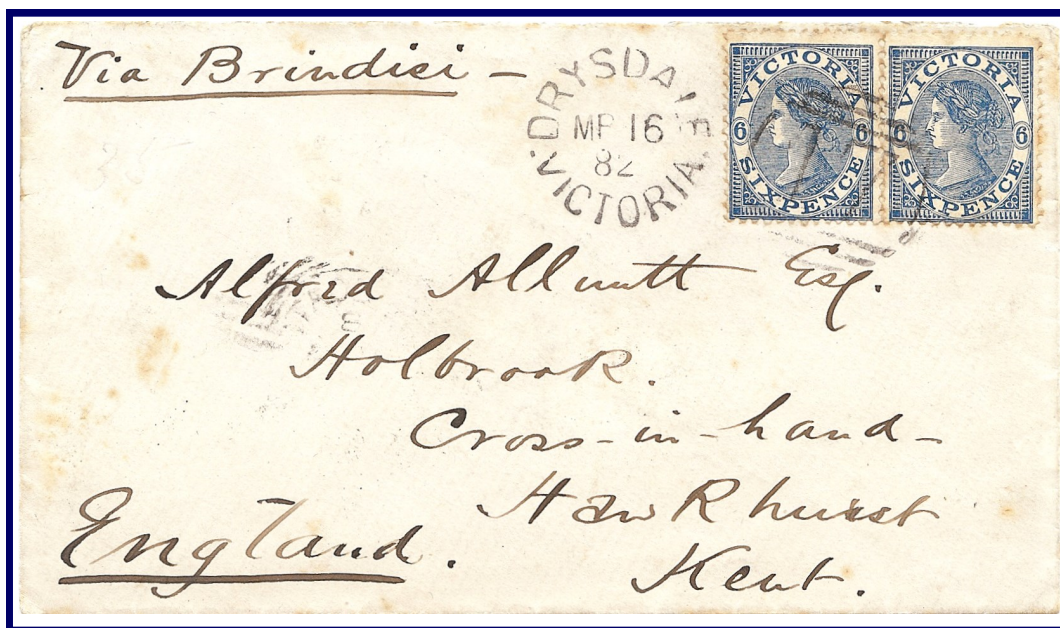 Via Brindisi -
DRYSDALE
MR 16
82
VICTORIA
VICTORIA
6 6
SIXPENCE
VICTORIA
6 6
SIXPENCE
Alfred Allnutt Esq.
Holbrook.
Cross-in-hand-
Hawkhurst
England. Kent.